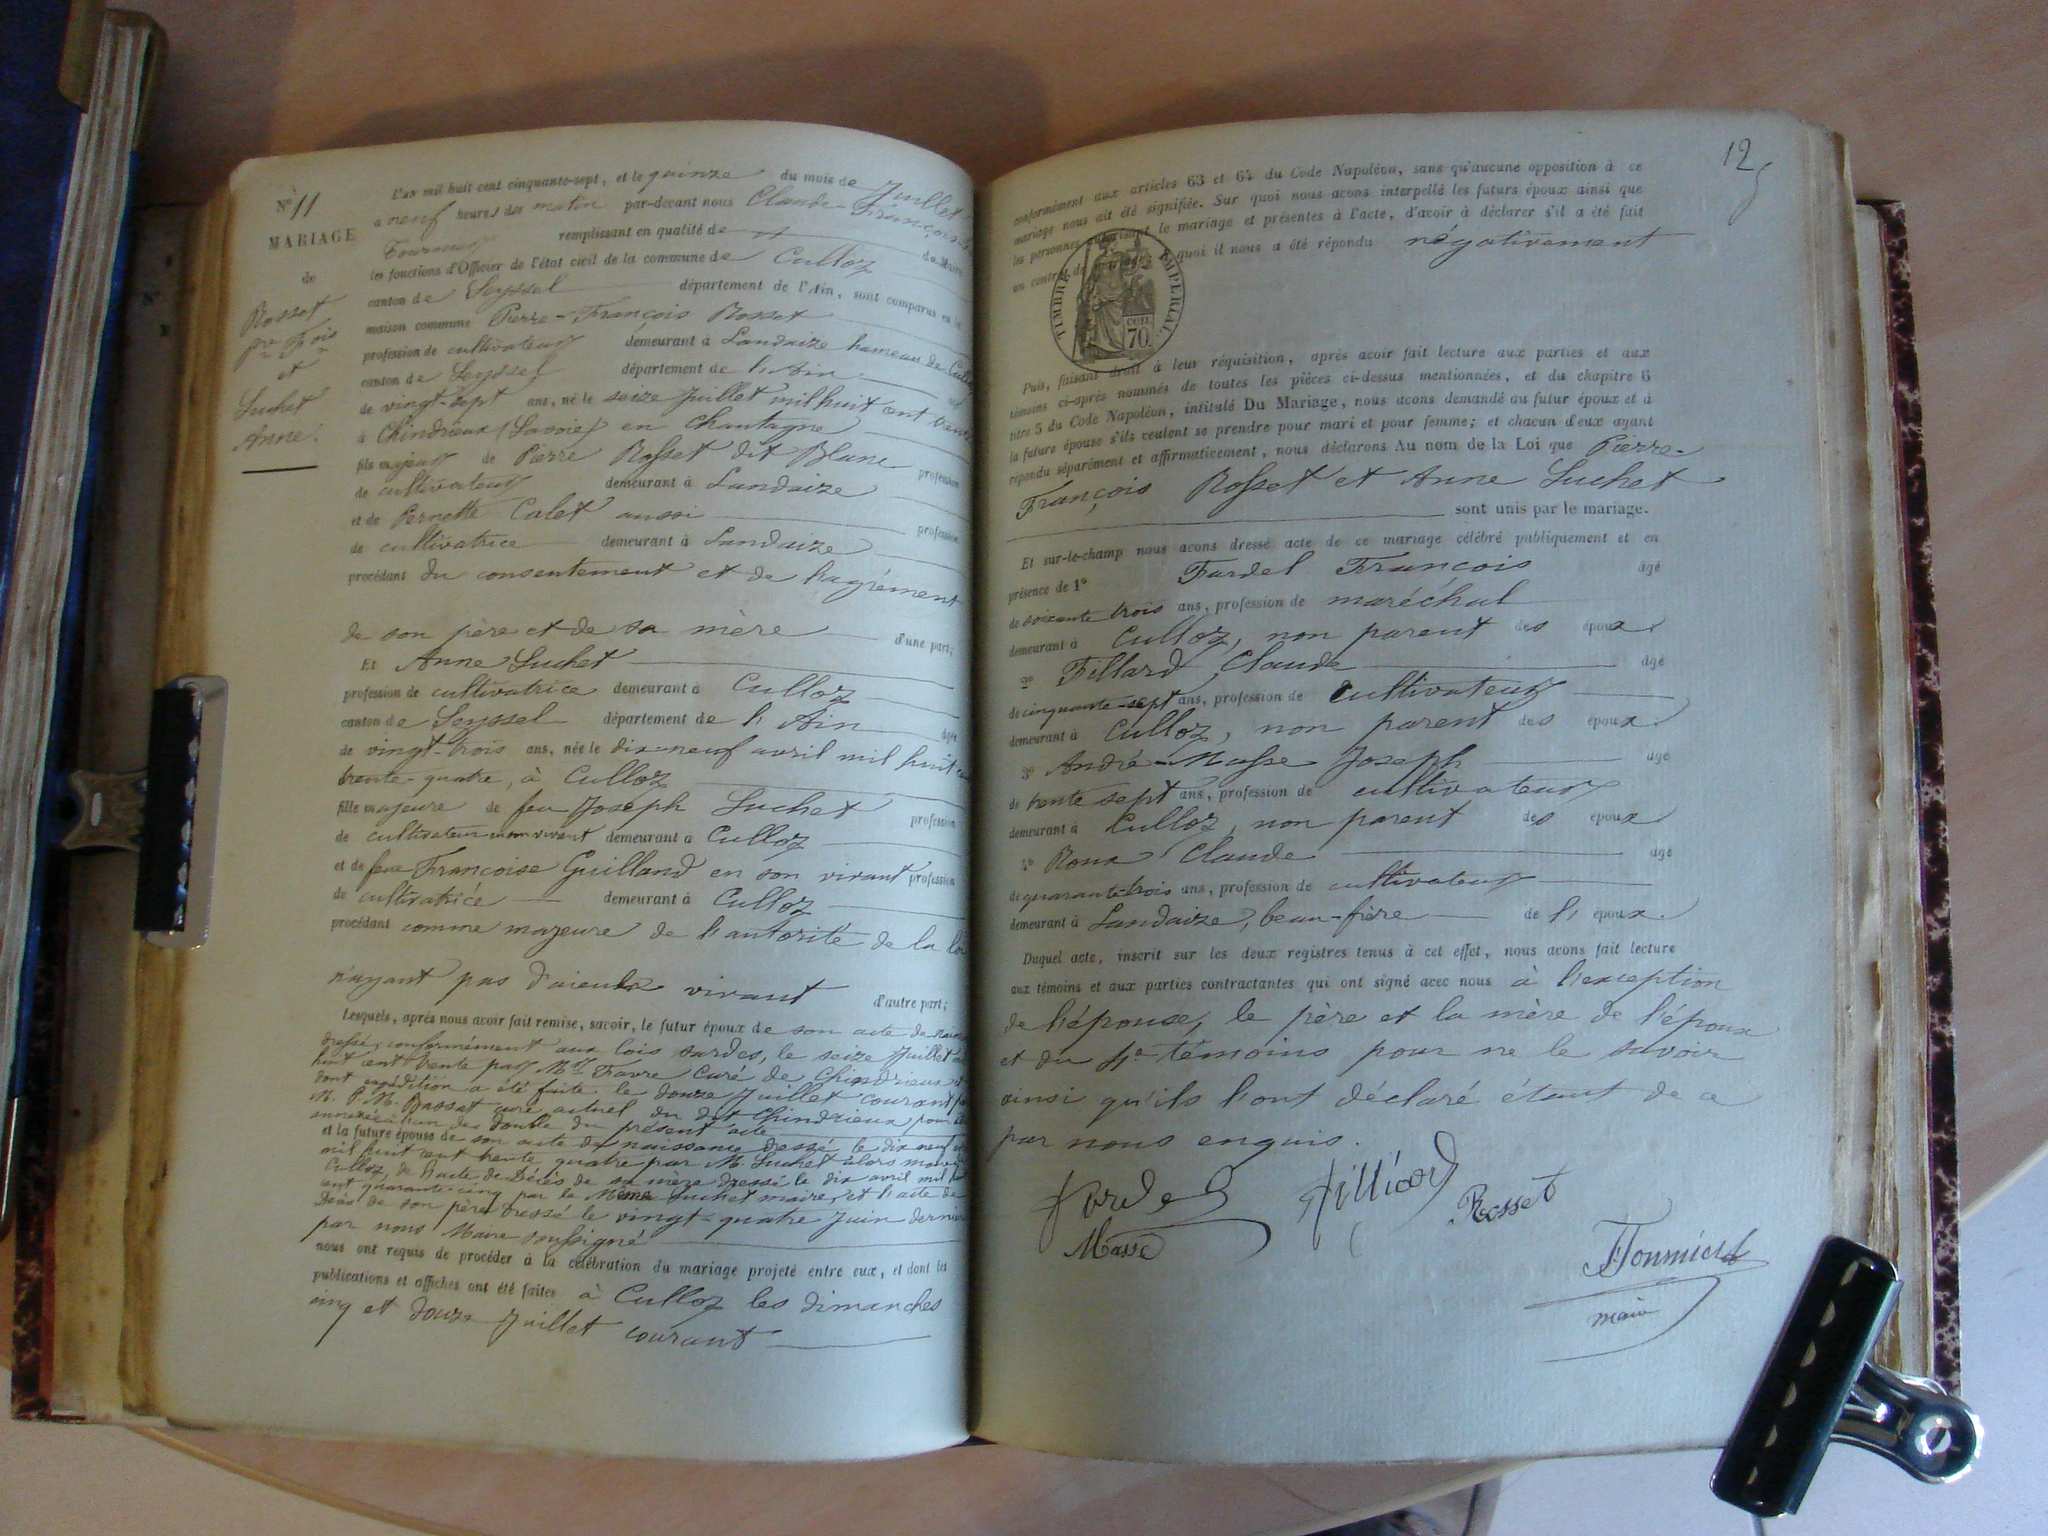 N° 11
MARIAGE
de
Rosset
Pre Fois
et
Luchet
Anne.
L'an mil huit cent cinquante-sept, et le quinze du mois de Juillet
à neuf heures du matin par-devant nous Claude-François
remplissant en qualité de de Maire
les fonctions d'Officier de l'état civil de la commune de Culloz
canton de Seyssel département de l'Ain, sont comparus en la
maison commune Pierre-François Rosset
profession de cultivateur demeurant à Landaize hameau de
canton de Seyssel département de l'Ain
de vingt-sept ans, né le seize Juillet mil huit cent trente
à Chindrieux (Savoie) en Chautagne
fils majeur de Pierre Rosset dit Blanc profession
de cultivateur demeurant à Landaize
et de Pernette Calet aussi profession
de cultivatrice demeurant à Landaize
procédant du consentement et de l'agrément
de son père et de sa mère d'une part;
Et Anne Luchet
profession de cultivatrice demeurant à Culloz
canton de Seyssel département de l'Ain âgée
de vingt-trois ans, née le dix-neuf avril mil huit cent
trente-quatre, à Culloz
fille majeure de feu Joseph Luchet profession
de cultivateur demeurant à Culloz
et de feue Françoise Guilland en son vivant profession
de cultivatrice demeurant à Culloz
procédant comme majeure de l'autorité de la loi
n'ayant pas d'aieuls vivant d'autre part;
Lesquels, après nous avoir fait remise, savoir, le futur époux de son acte de
dressé, conformément aux lois sardes, le seize Juillet mil
huit cent trente par Favre Curé de Chindrieux
dont expédition a été faite le douze Juillet courant par
curé actuel du dit Chindrieux pour être
du double du présent acte
et la future épouse de son acte de naissance dressé le dix neuf
mil huit cent trente quatre par M. Luchet alors maire
Culloz, de l'acte de décès de sa mère dressé le dix avril mil huit
cent quarante-cinq par le Même Luchet maire, et l'acte de
décès de son père dressé le vingt-quatre Juin dernier
par nous Maire soussigné
nous ont requis de procéder à la célébration du mariage projeté entre eux, et dont les
publications et affiches ont été faites à Culloz les dimanches
cinq et douze Juillet courant
12
conformément aux articles 63 et 64 du Code Napoléon, sans qu'aucune opposition à ce
mariage nous ait été signifiée. Sur quoi nous avons interpellé les futurs époux ainsi que
les personnes autorisant le mariage et présentes à l'acte, d'avoir à déclarer s'il a été fait
un contrat de mariage, à quoi il nous a été répondu négativement
TIMBRE IMPERIAL
CENT. 70.
Puis, faisant droit à leur réquisition, après avoir fait lecture aux parties et aux
témoins ci-après nommés de toutes les pièces ci-dessus mentionnées, et du chapitre 6
titre 5 du Code Napoléon, intitulé Du Mariage, nous avons demandé au futur époux et à
la future épouse s'ils veulent se prendre pour mari et pour femme; et chacun d'eux ayant
répondu séparément et affirmativement, nous déclarons Au nom de la Loi que Pierre-
François Rosset et Anne Luchet
sont unis par le mariage.
Et sur-le-champ nous avons dressé acte de ce mariage célébré publiquement et en
présence de 1° Fardel François âgé
de soixante trois ans, profession de maréchal
demeurant à Culloz, non parent des époux.
2° Fillard Claude âgé
de cinquante-sept ans, profession de cultivateur
demeurant à Culloz, non parent des époux.
3° André-Masse Joseph âgé
de trente sept ans, profession de cultivateur
demeurant à Culloz, non parent des époux
4° Roux Claude âgé
de quarante-trois ans, profession de cultivateur
demeurant à Landaize, beau-frère de l'époux.
Duquel acte, inscrit sur les deux registres tenus à cet effet, nous avons fait lecture
aux témoins et aux parties contractantes qui ont signé avec nous à l'exception
de l'épouse, le père et la mère de l'époux
et du 4e témoins pour ne le savoir
ainsi qu'ils l'ont déclaré étant de ce
par nous enquis.
Fardel Filliard Rosset
Masse
maire